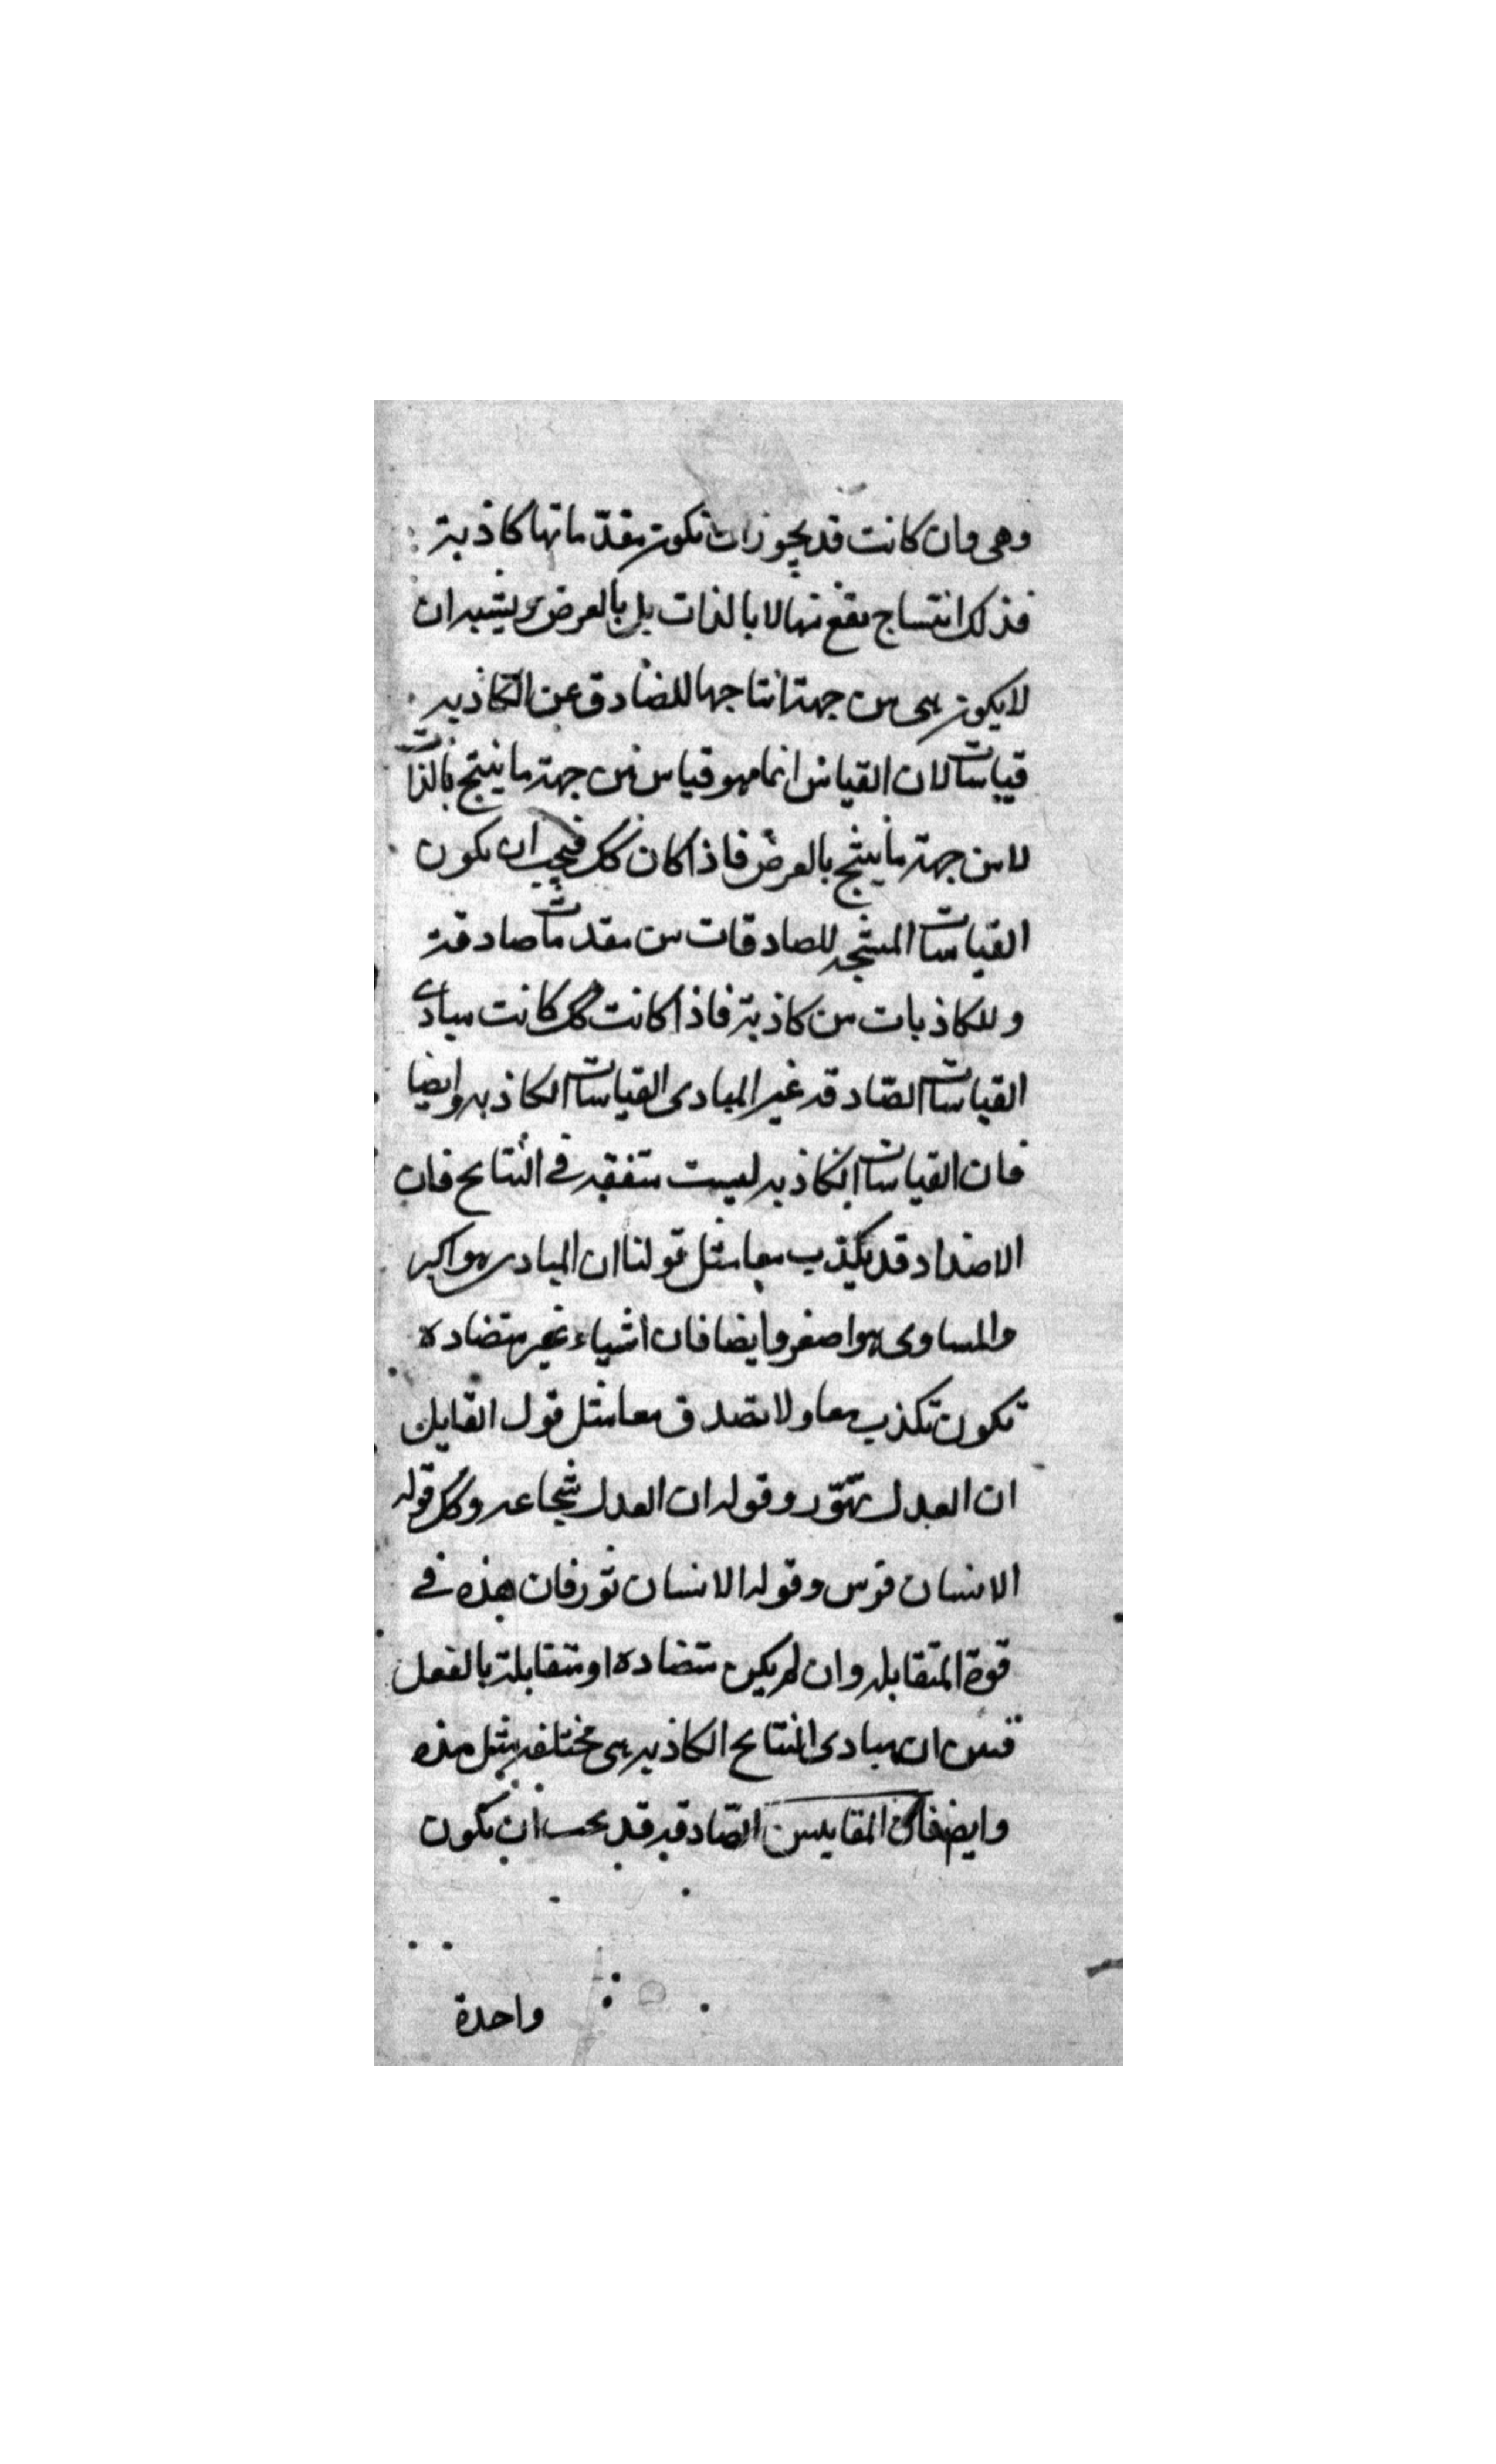 وهى وان كانت قد يجوز ان تكون مقدّماتها كاذبة
فذلك انتساج يقع منها لا بالذات بل بالعرض ويشبه ان
لا يكون هى من جهة انتاجها للصادق عن الكاذبه
قياسات لان القياس انما هو قياس من جهة ما ينتج بالذات
لا من جهة ما ينتج بالعرض فاذا كان كك فيجب ان يكون
القياسات المنتجه للصادقات من مقدمات صادقة
وللكاذبات من كاذبة فاذا كانت كك كانت مبادى
القياسات الصّادقه غير المبادى القياسات الكاذبه وايضا
فان القياسات الكاذبه ليست متفقه فى النتايح فان
الاضداد قد يكذب معا مثل قولنا ان المبادى هو اكبر
والمساوى هو اصغر وايضا فان اشياء غير متضاده
تكون تكذب معا ولا تصدق معا مثل قول القايل
ان العدل تهّور وقوله ان العدل شجاعه وكك قوله
الانسان فرس وقوله الانسان ثور فان هذه فى
قوة المتقابله وان لم يكن متضاده او متقابلة بالفعل
فبين ان مبادى النتايح الكاذبه هى مختلفه مثل هذه
وايضا فان المقاييس الصّادقه قد يجب ان تكون
واحدة